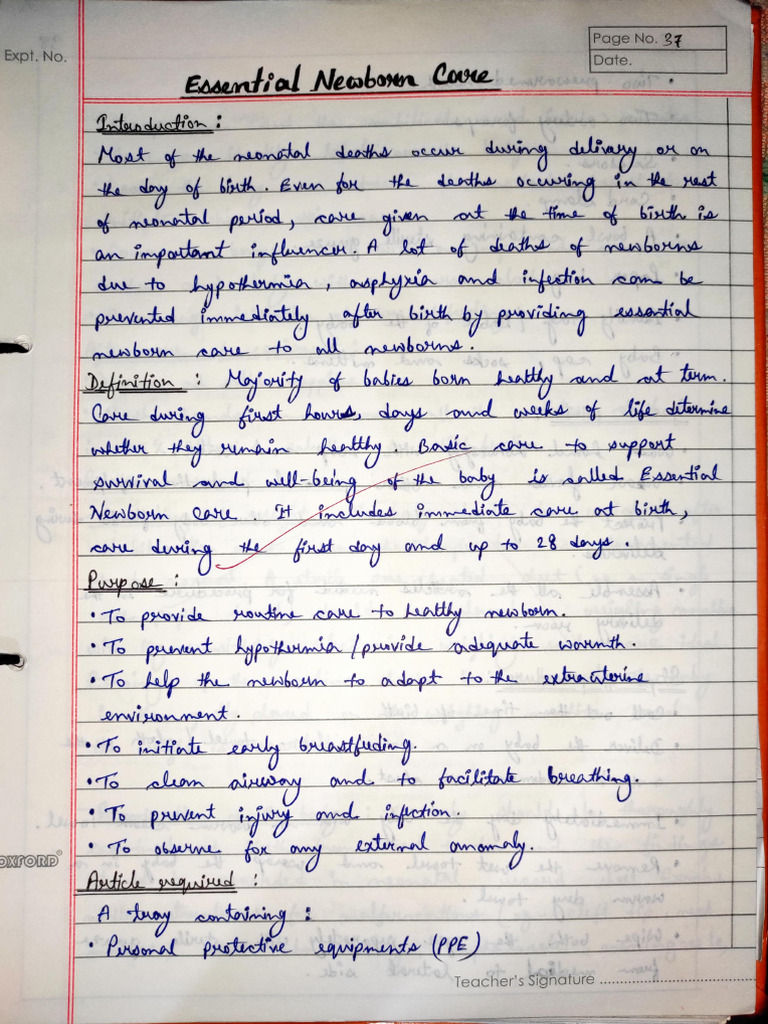 Expt. No.
Page No. 37
Date.
Essential Newborn Care
Introduction :
Most of the neonatal deaths occur during delivery or on
the day of birth. Even for the deaths occuring in the rest
of neonatal period, care given at the time of birth is
an important influencer. A lot of deaths of newborns
due to hypothermia, asphyxia and infection can be
prevented immediately after birth by providing essential
newborn care to all newborns.
Definition : Majority of babies born healthy and at term.
Care during first hours, days and weeks of life determine
whether they remain healthy. Basic care to support
survival and well-being of the baby is called Essential
Newborn Care. It includes immediate care at birth,
care during the first day and up to 28 days.
Purpose :
• To provide routine care to healthy newborn.
• To prevent hypothermia/provide adequate warmth.
• To help the newborn to adapt to the extrauterine
environment.
• To initiate early breastfeeding.
• To clean airway and to facilitate breathing.
• To prevent injury and infection.
• To observe for any external anomaly.
OXFORD®
Article required :
A tray containing :
• Personal protective equipments (PPE)
Teacher's Signature ....................................